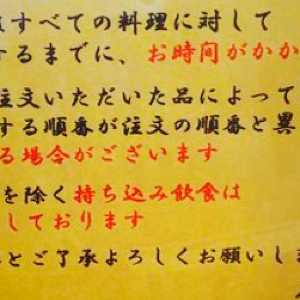 すべての料理に対して
するまでに、お時間がかか
注文いただいた品によって
する順番が注文の順番と異
る場合がございます
を除く持ち込み飲食は
しております
とご了承よろしくお願いしま